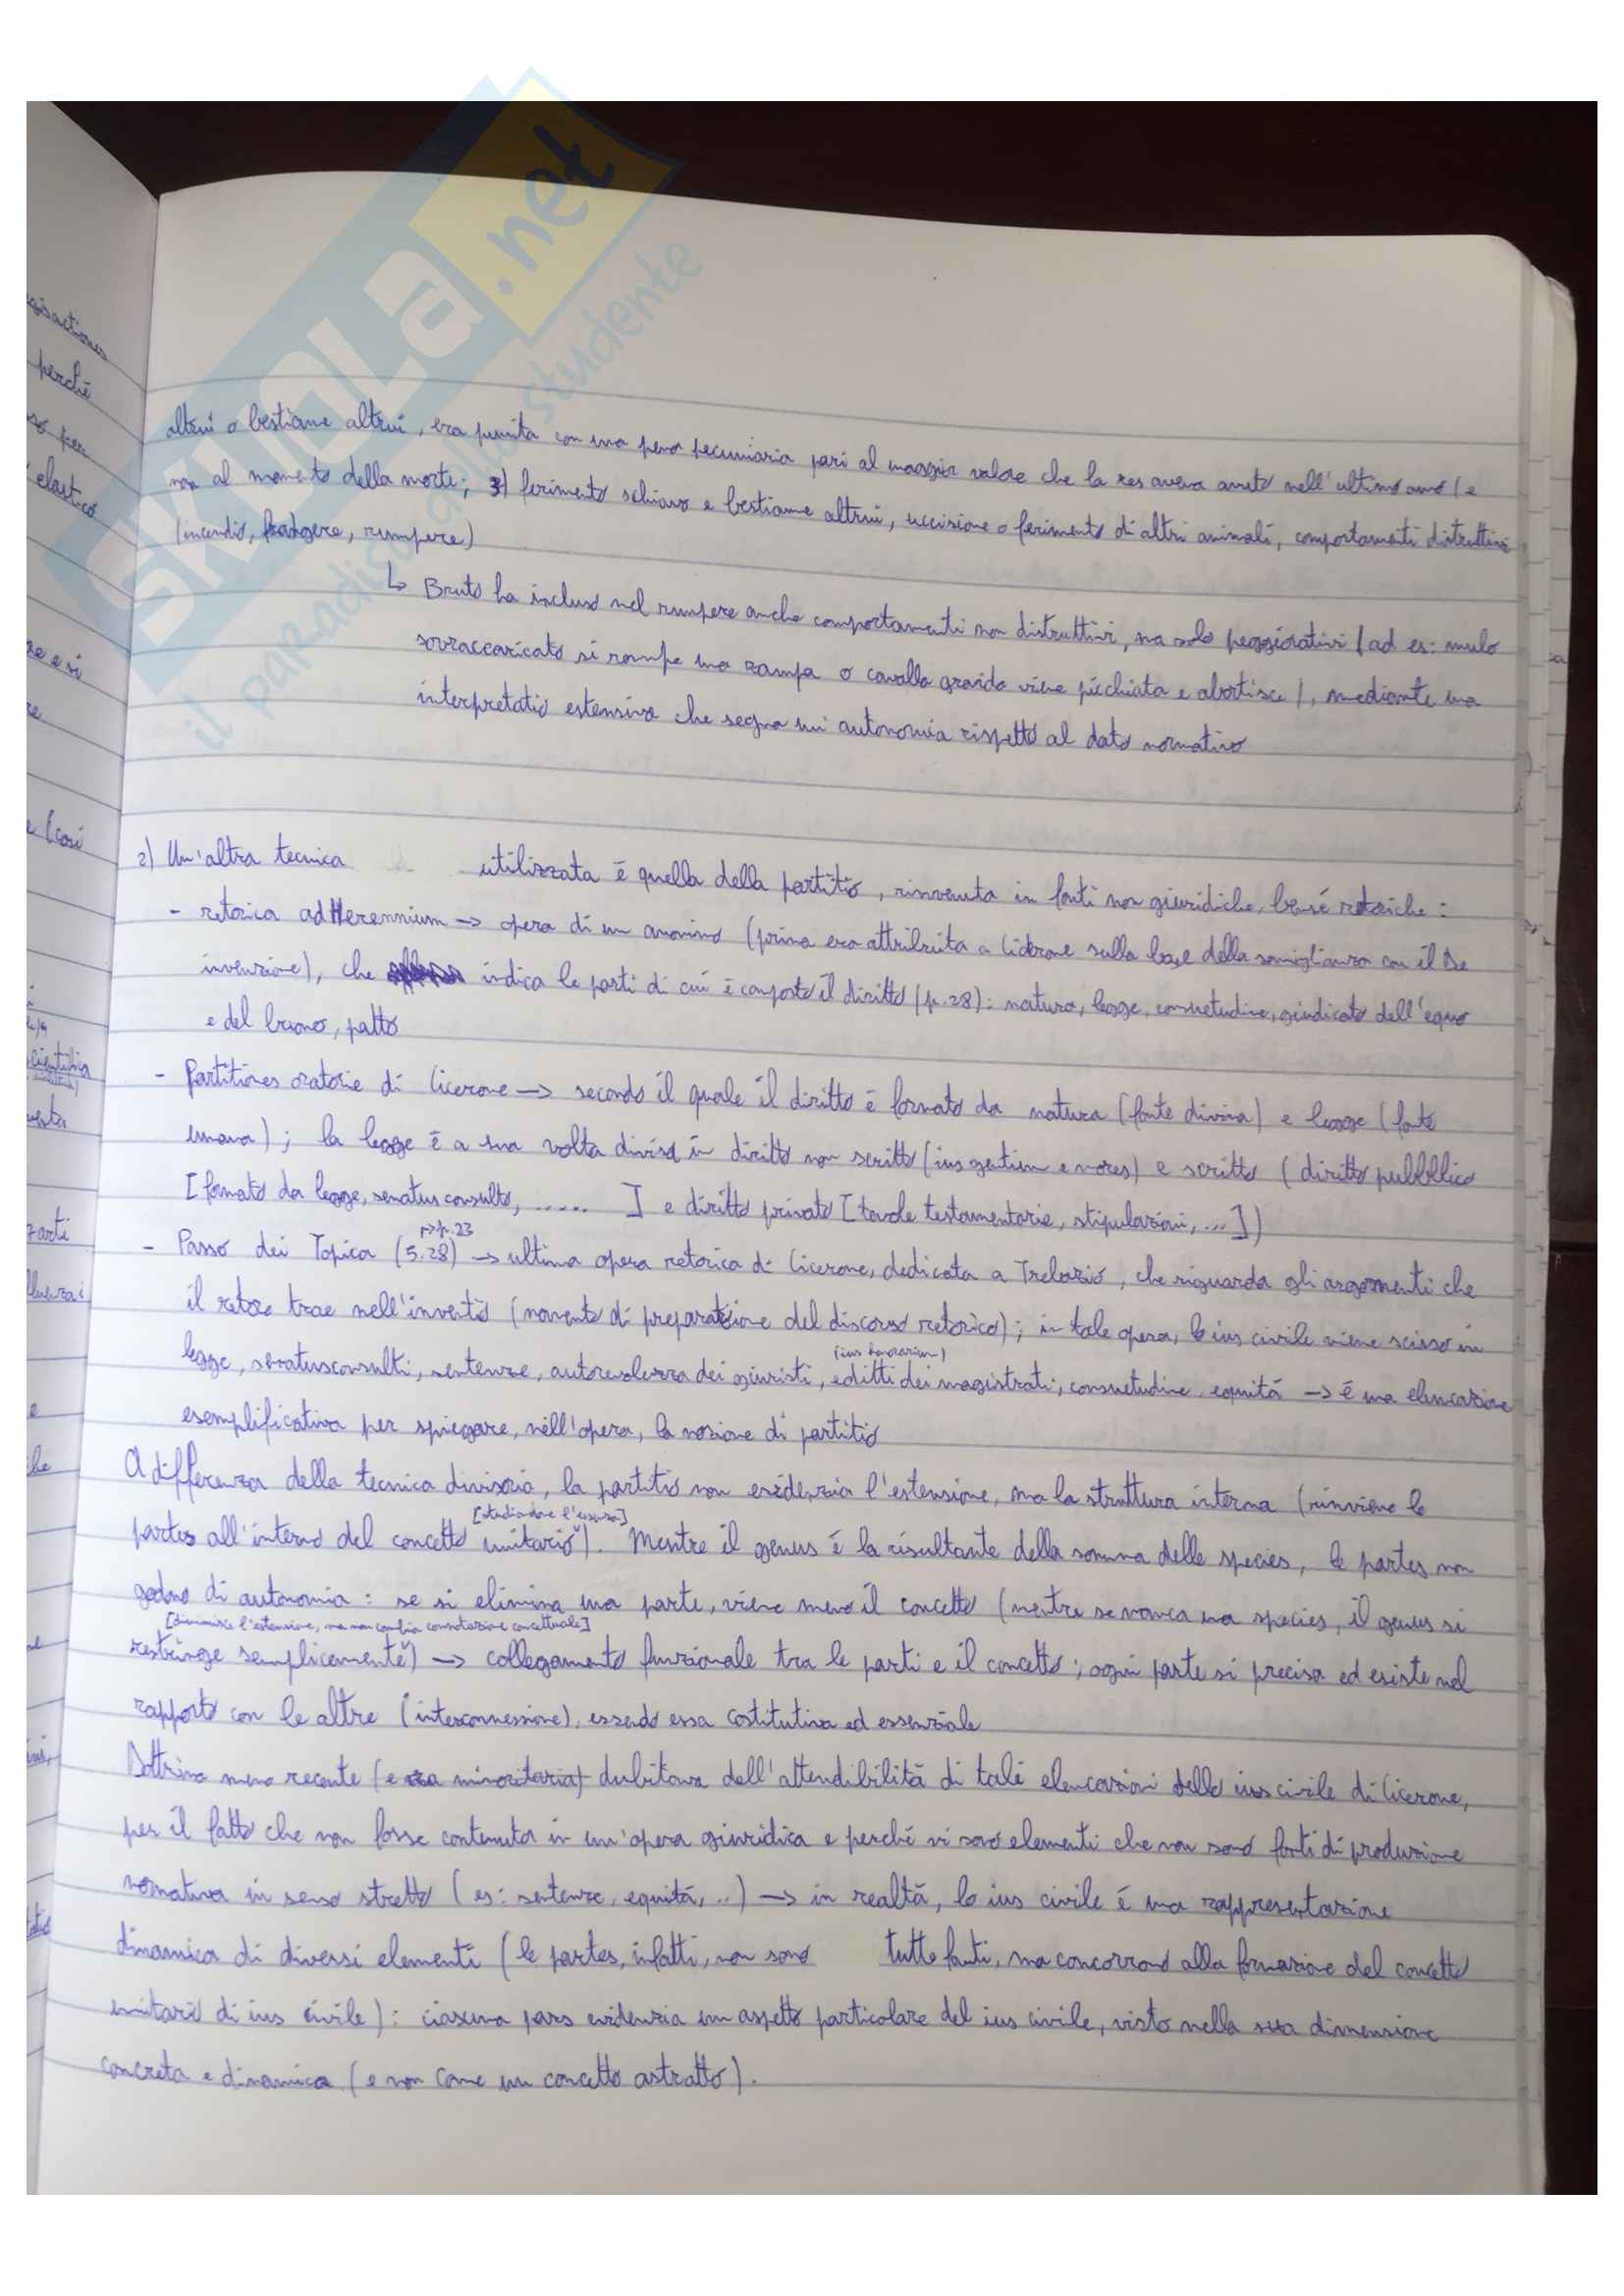 altrui o bestiame altrui, era punita con una pena pecuniaria pari al maggior valore che la res aveva avuto nell'ultimo anno (e
non al momento della morte; 3) ferimento schiavo e bestiame altrui, uccisione o ferimento di altri animali, comportamenti distruttivi
(incendio, frangere, rumpere)
↳ Bruto ha incluso nel rumpere anche comportamenti non distruttivi, ma solo peggiorativi (ad es: mulo
sovraccaricato si rompe una zampa o cavalla gravida viene picchiata e abortisce), mediante una
interpretatio estensiva che segna un' autonomia rispetto al dato normativo
2) Un'altra tecnica utilizzata è quella della partitio, rinvenuta in fonti non giuridiche, bensì retoriche:
- retorica ad Herennium → opera di un anonimo (prima era attribuita a Cicerone sulla base della somiglianza con il De
invenzione), che indica le parti di cui è composto il diritto (p.28): natura, legge, consuetudine, giudicato dell'equo
e del buono, patto
- Partitiones oratorie di Cicerone → secondo il quale il diritto è formato da natura (fonte divina) e legge (fonte
umana); la legge è a sua volta divisa in diritto non scritto (ius gentium e mores) e scritto (diritto pubblico
[formato da legge, senatus consulto, ..... ] e diritto privato [tavole testamentarie, stipulazioni, ...])
↱p.23
- Passo dei Topica (5.28) → ultima opera retorica di Cicerone, dedicata a Trebazio, che riguarda gli argomenti che
il retore trae nell'inventio (momento di preparazione del discorso retorico); in tale opera, lo ius civile viene scisso in
(ius honorarium)
legge, senatusconsulti, sentenze, autorevolezza dei giuristi, editti dei magistrati, consuetudine, equità → è una elencazione
esemplificativa per spiegare, nell'opera, la nozione di partitio
A differenza della tecnica divisoria, la partitio non evidenzia l'estensione, ma la struttura interna (rinviene le
[studiandone l'essenza]
partes all'interno del concetto unitario). Mentre il genus è la risultante della somma delle species, le partes non
godono di autonomia: se si elimina una parte, viene meno il concetto (mentre se manca una species, il genus si
[diminuisce l'estensione, ma non cambia connotazione concettuale]
restringe semplicemente) → collegamento funzionale tra le parti e il concetto; ogni parte si precisa ed esiste nel
rapporto con le altre (interconnessione), essendo essa costitutiva ed essenziale
Dottrina meno recente (e ora minoritaria) dubitava dell'attendibilità di tali elencazioni dello ius civile di Cicerone,
per il fatto che non fosse contenuta in un'opera giuridica e perché vi sono elementi che non sono fonti di produzione
normativa in senso stretto (es: sentenze, equità, ..) → in realtà, lo ius civile è una rappresentazione
dinamica di diversi elementi (le partes, infatti, non sono tutte fonti, ma concorrono alla formazione del concetto
unitario di ius civile): ciascuna pars evidenzia un aspetto particolare del ius civile, visto nella sua dimensione
concreta e dinamica (e non come un concetto astratto).
SKUOLA.net
il paradiso dello studente